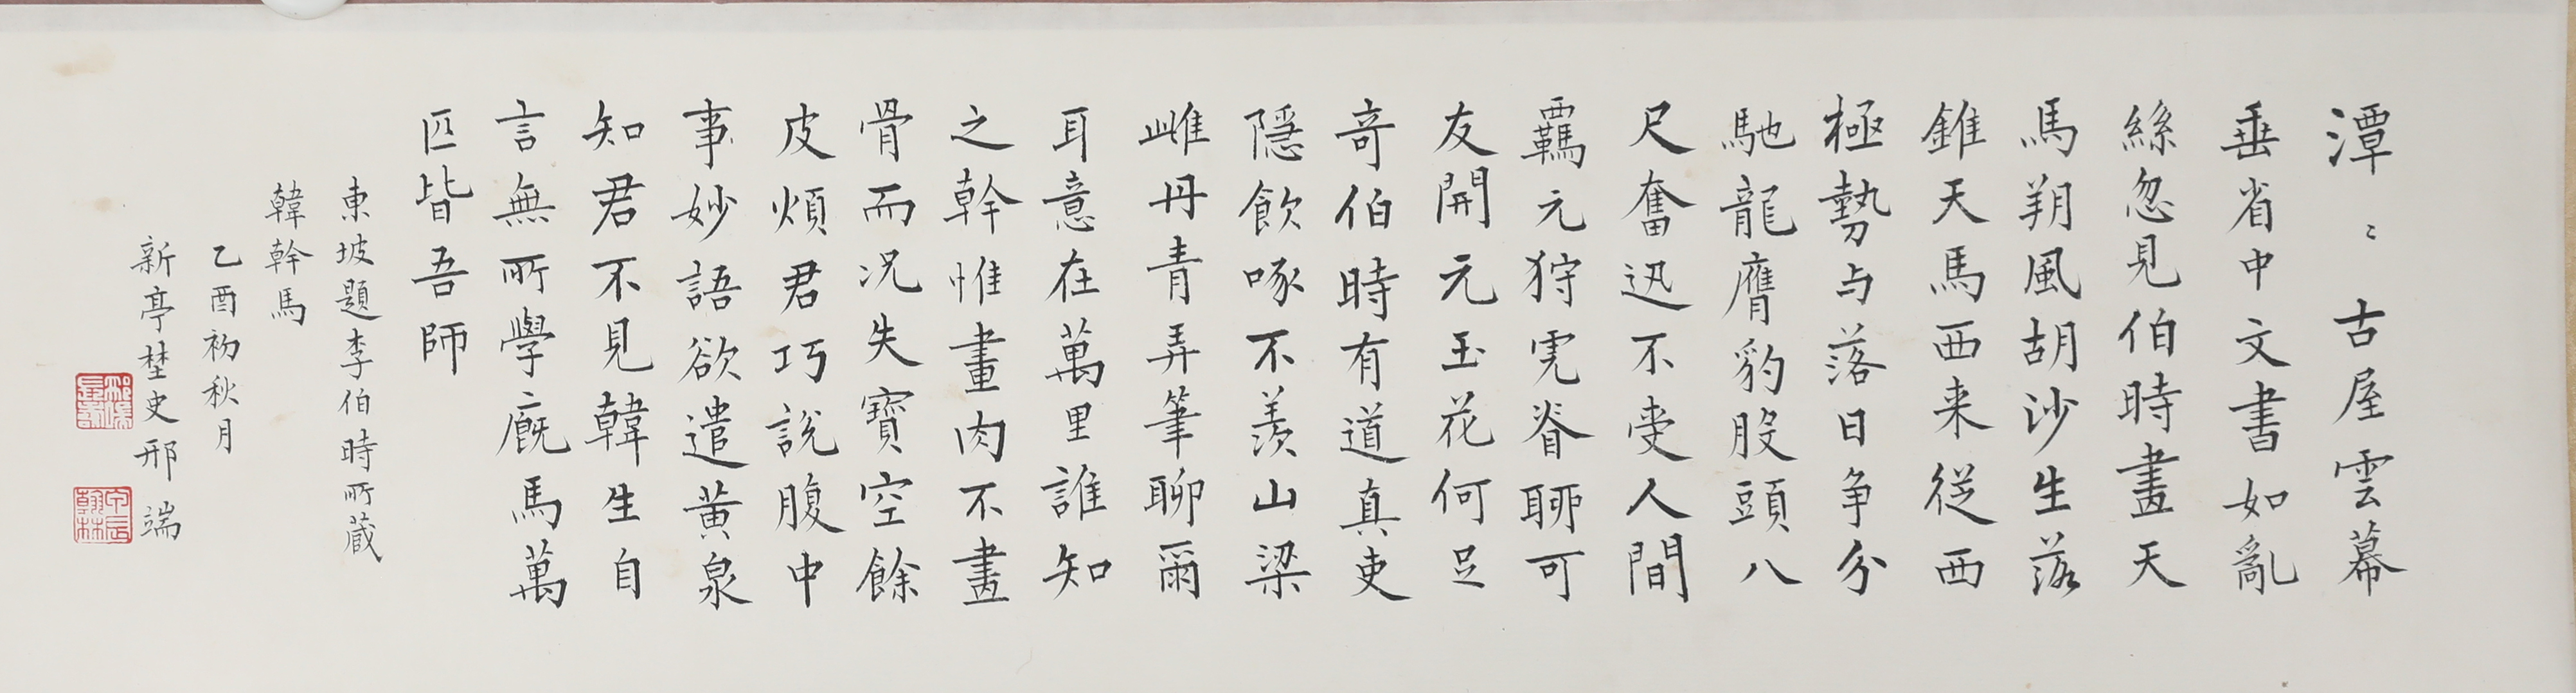 潭〻古屋雲幕
垂省中文書如亂
絲忽見伯時畫天
馬朔風胡沙生落
錐天馬西来從西
極勢与落日争分
馳龍膺豹股頭八
尺奮迅不受人間
羈元狩虎脊聊可
友開元玉花何足
奇伯時有道真吏
隱飲啄不羨山梁
雌丹青弄筆聊爾
耳意在萬里誰知
之幹惟畫肉不畫
骨而况失實空餘
皮煩君巧説腹中
事妙語欲遣黃泉
知君不見韓生自
言無所學廐馬萬
匹皆吾師
東坡題李伯時所藏
韓幹馬
乙酉初秋月
新亭埜史邢端